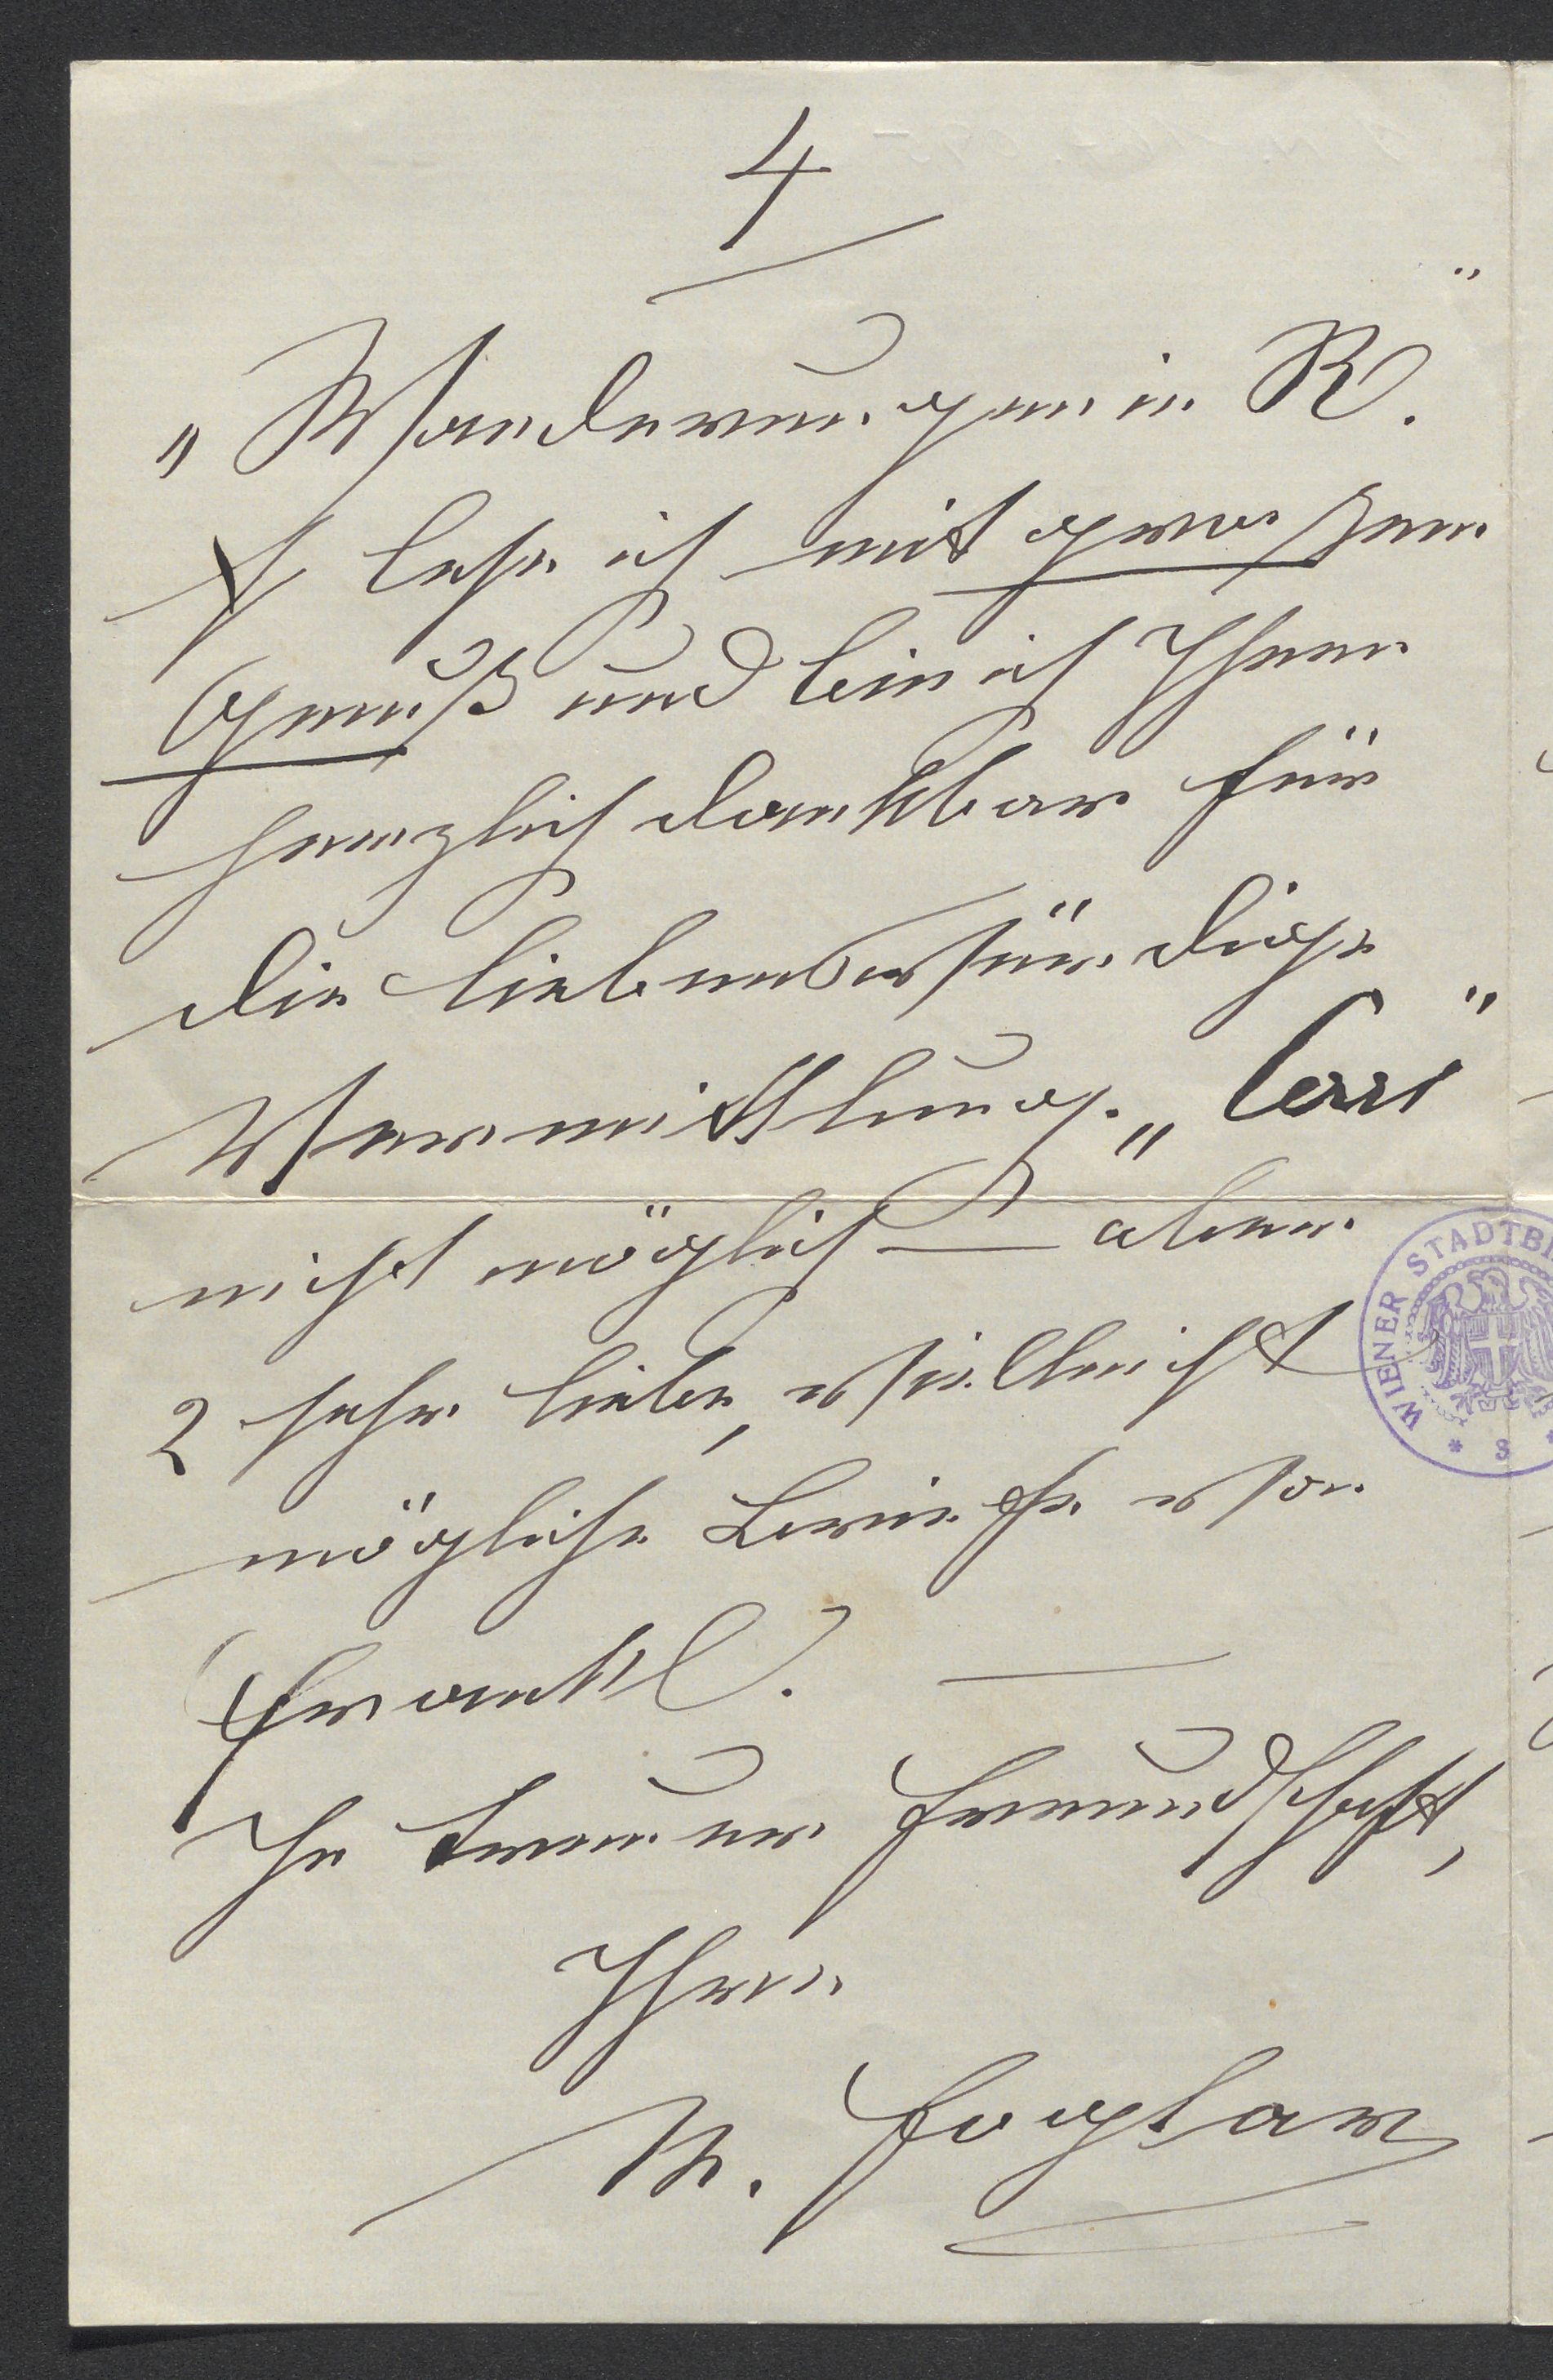 4
„Wanderungen in R."
lese ich mit großem
Genuß und bin ich Ihnen
herzlich dankbar für
die liebenswürdige
Vermittlung. „Cerri"
nicht möglich — aber
2 sehr liebe, vielleicht
mögliche Briefe von
Frankl. —
In treuer Freundschaft,
Ihr
L. Foglar
WIENER STADTBI
* 3 *